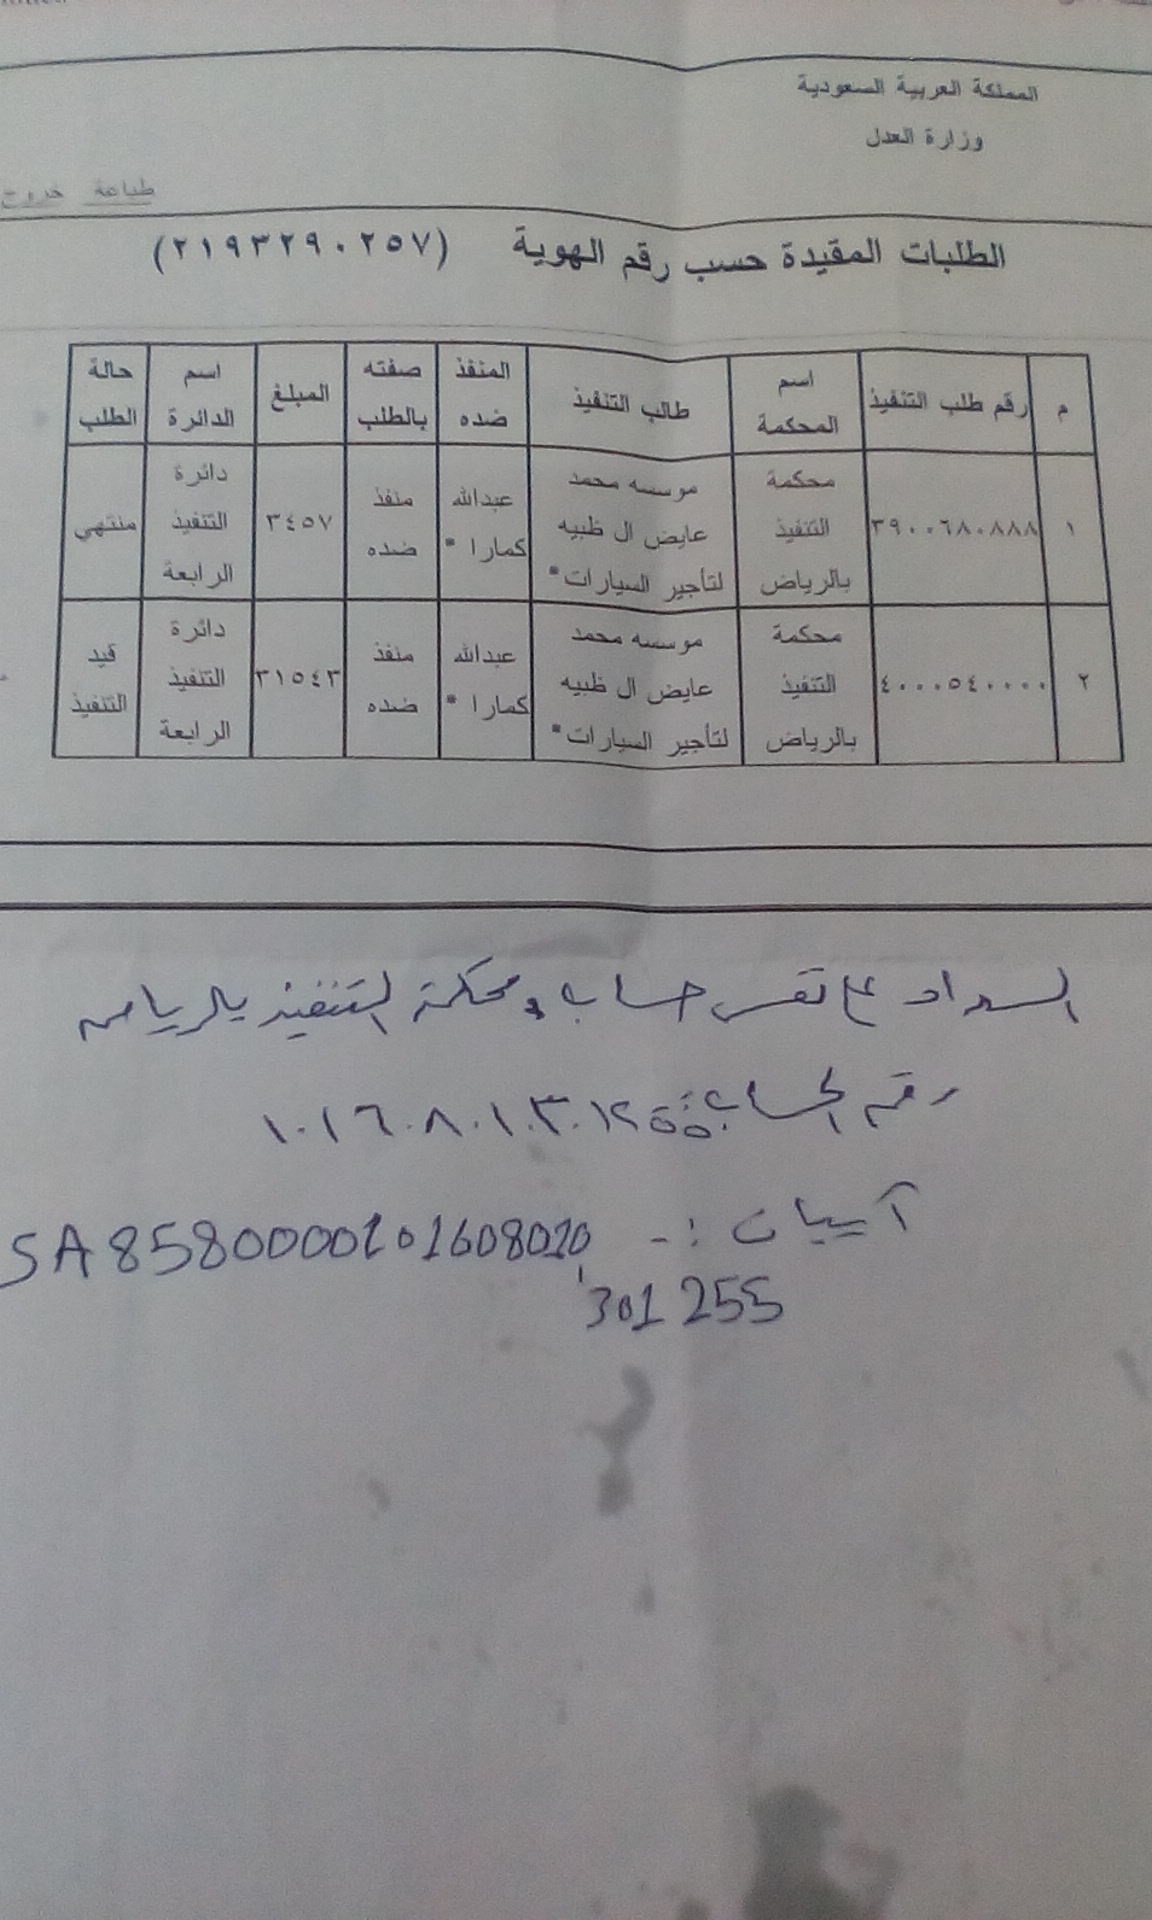 المملكة العربية السعودية
وزارة العدل
طباعة خروج
الطلبات المقيدة حسب رقم الهوية (٢١٩٣٢٩٠٢٥٧)
م رقم طلب التنفيذ اسم المحكمة طالب التنفيذ المنفذ ضده صفته بالطلب المبلغ اسم الدائرة حالة الطلب
١ ٣٩٠٠٦٨٠٨٨٨ محكمة التنفيذ بالرياض موسسه محمد عايض ال ظبيه لتأجير السيارات* عبدالله كمارا * منفذ ضده ٣٤٥٧ دائرة التنفيذ الرابعة منتهي
٢ ٤٠٠٠٥٤٠٠٠٠ محكمة التنفيذ بالرياض موسسه محمد عايض ال ظبيه لتأجير السيارات* عبدالله كمارا * منفذ ضده ٣١٥٤٣ دائرة التنفيذ الرابعة قيد التنفيذ
السداد ع نفس حساب محكمة التنفيذ بالرياض
رقم الحساب:
آيبان :- SA8580000101608010
301255